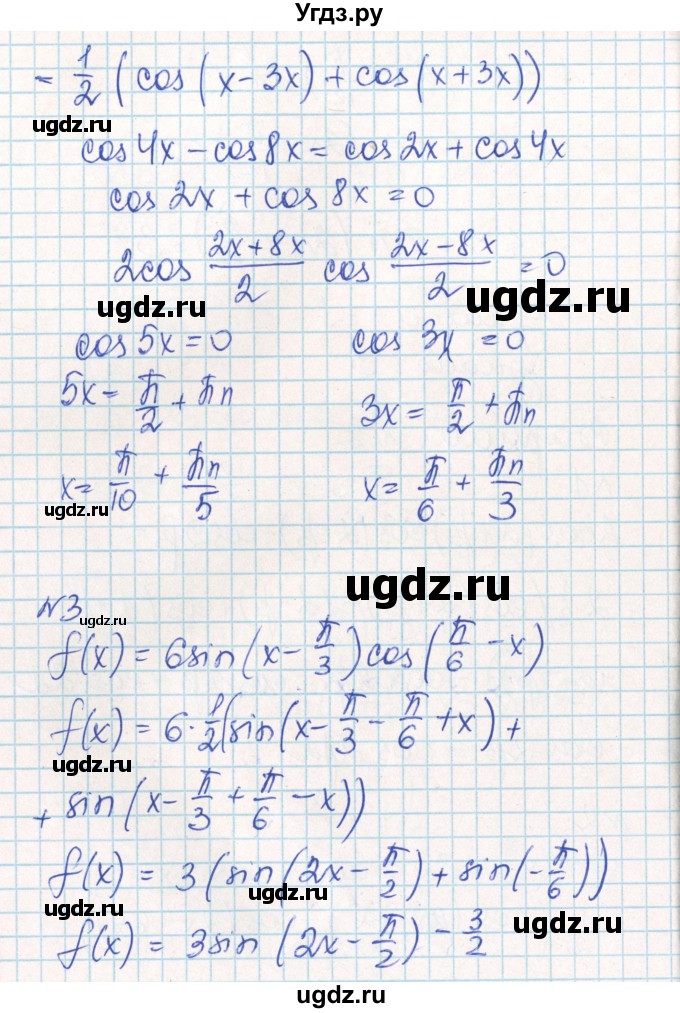 Угдз.ру
= 1/2 (cos(x-3x)+cos(x+3x))
ugdz.ru
cos4x-cos8x=cos2x+cos4x
ugdz.ru
cos2x+cos8x=0
2cos (2x+8x)/2 cos (2x-8x)/2 =0
ugdz.ru ugdz.ru
cos5x=0 cos3x=0
5x= π/2 + πn 3x= π/2 + πn
x= π/10 + πn/5 x= π/6 + πn/3
ugdz.ru
ugdz.ru
N3
ugdz.ru
f(x)=6sin(x- π/3)cos(π/6 -x)
f(x)=6· 1/2(sin(x- π/3 - π/6 +x)+
ugdz.ru
+ sin(x- π/3 + π/6 -x))
f(x)= 3(sin(2x- π/2)+sin(- π/6))
ugdz.ru
ugdz.ru ugdz.ru
f(x)= 3sin(2x- π/2)- 3/2
ugdz.ru